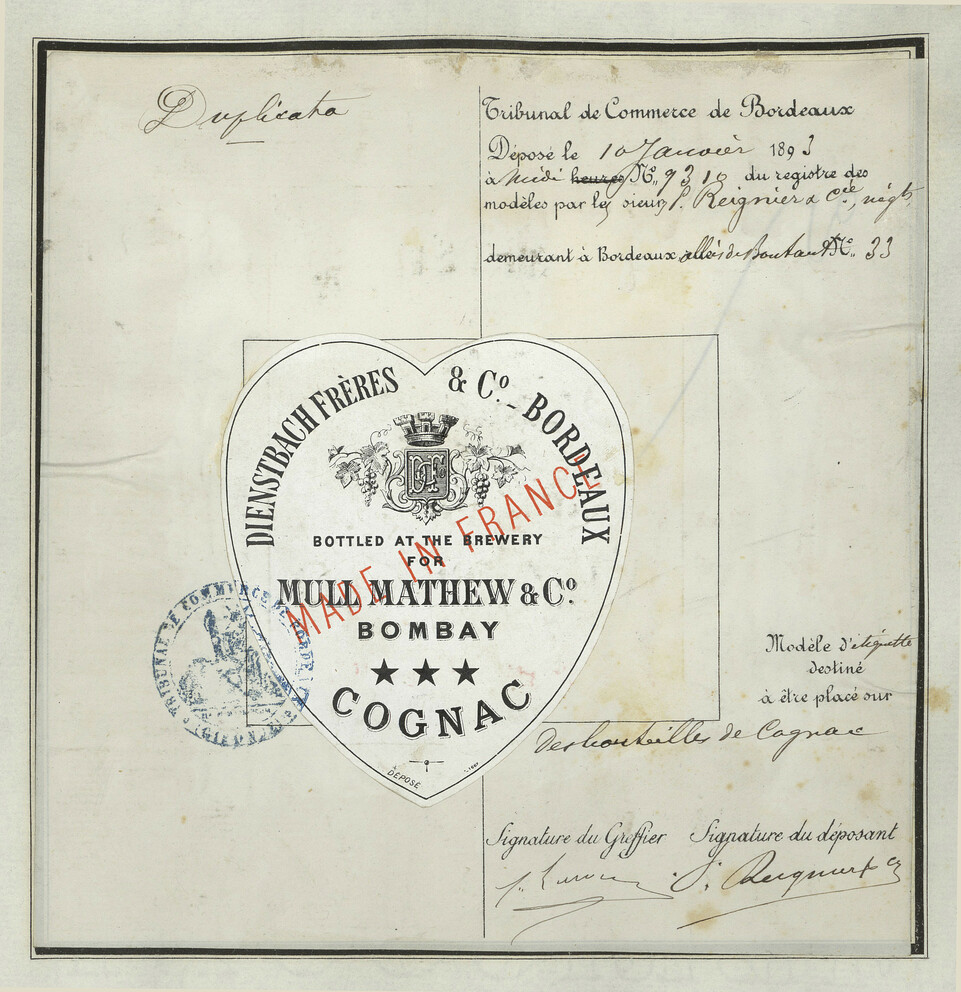 Duplicata
Tribunal de Commerce de Bordeaux
Déposé le 10 Janvier 1893
à Midi heures No. 9310 du registre des
modèles par les sieurs P. Reignier & Cie, négts,
demeurant à Bordeaux allées de Boutaut No. 33
DIENSTBACH FRÈRES & Co. - BORDEAUX
BOTTLED AT THE BREWERY
FOR
MADE IN FRANCE
MULL MATHEW & Co.
BOMBAY
★★★
COGNAC
DÉPOSÉ
TRIBUNAL DE COMMERCE DE BORDEAUX
Modèle d'étiquette
destiné
à être placé sur
des bouteilles de Cognac
Signature du Greffier Signature du déposant